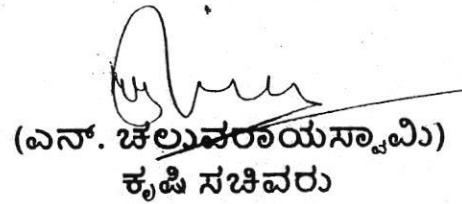 (ಎನ್. ಚಲುವರಾಯಸ್ವಾಮಿ)
ಕೃಷಿ ಸಚಿವರು